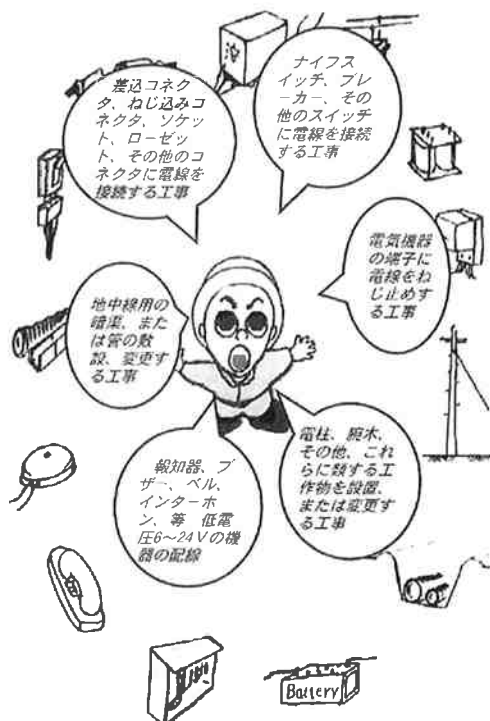 差込コネク
タ、ねじ込みコ
ネクタ、ソケッ
ト、ローゼッ
ト、その他のコ
ネクタに電線を
接続する工事
ナイフス
イッチ、ブレ
ーカー、その
他のスイッチ
に電線を接続
する工事
電気機器
の端子に
電線をね
じ止めす
る工事
地中線用の
暗渠、また
は管の敷
設、変更す
る工事
電柱、腕木、
その他、これ
らに類する工
作物を設置、
または変更す
る工事
報知器、ブ
ザー、ベル、
インターホ
ン、等 低電
圧6～24Vの機
器の配線
Battery